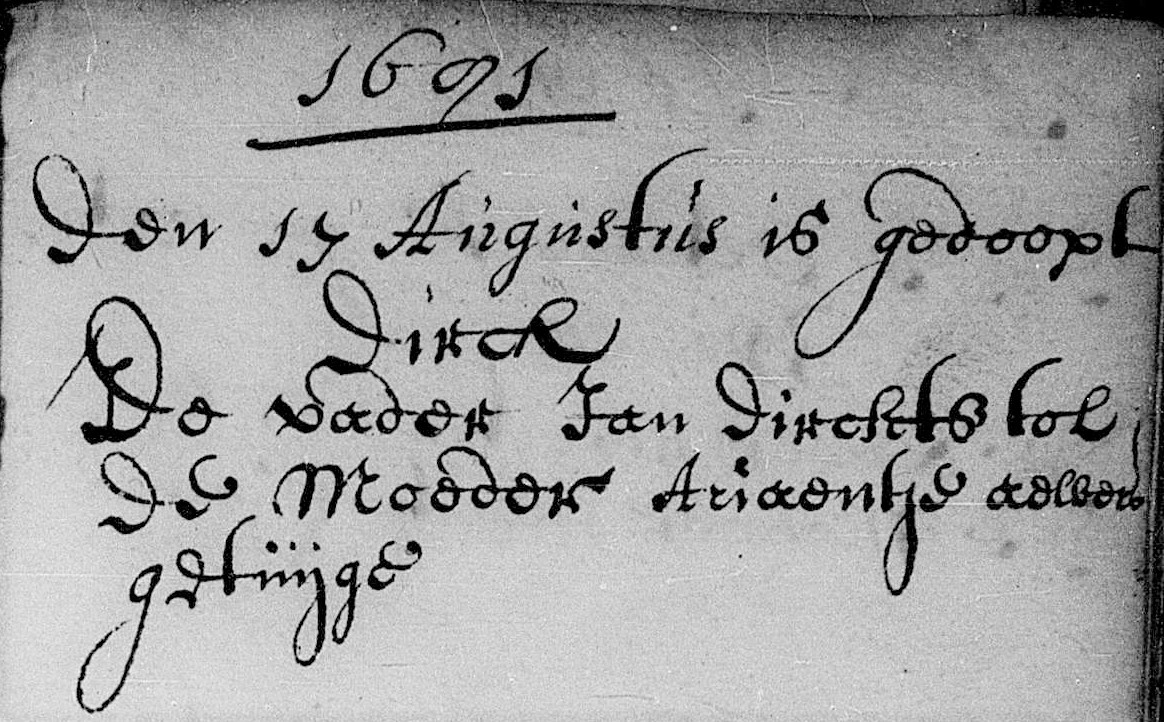 1691
Den 17 Augustus is gedoopt
Dirck
De vader Jan Dirckts tol
De Moeder Ariaentje aelbers
getuijge